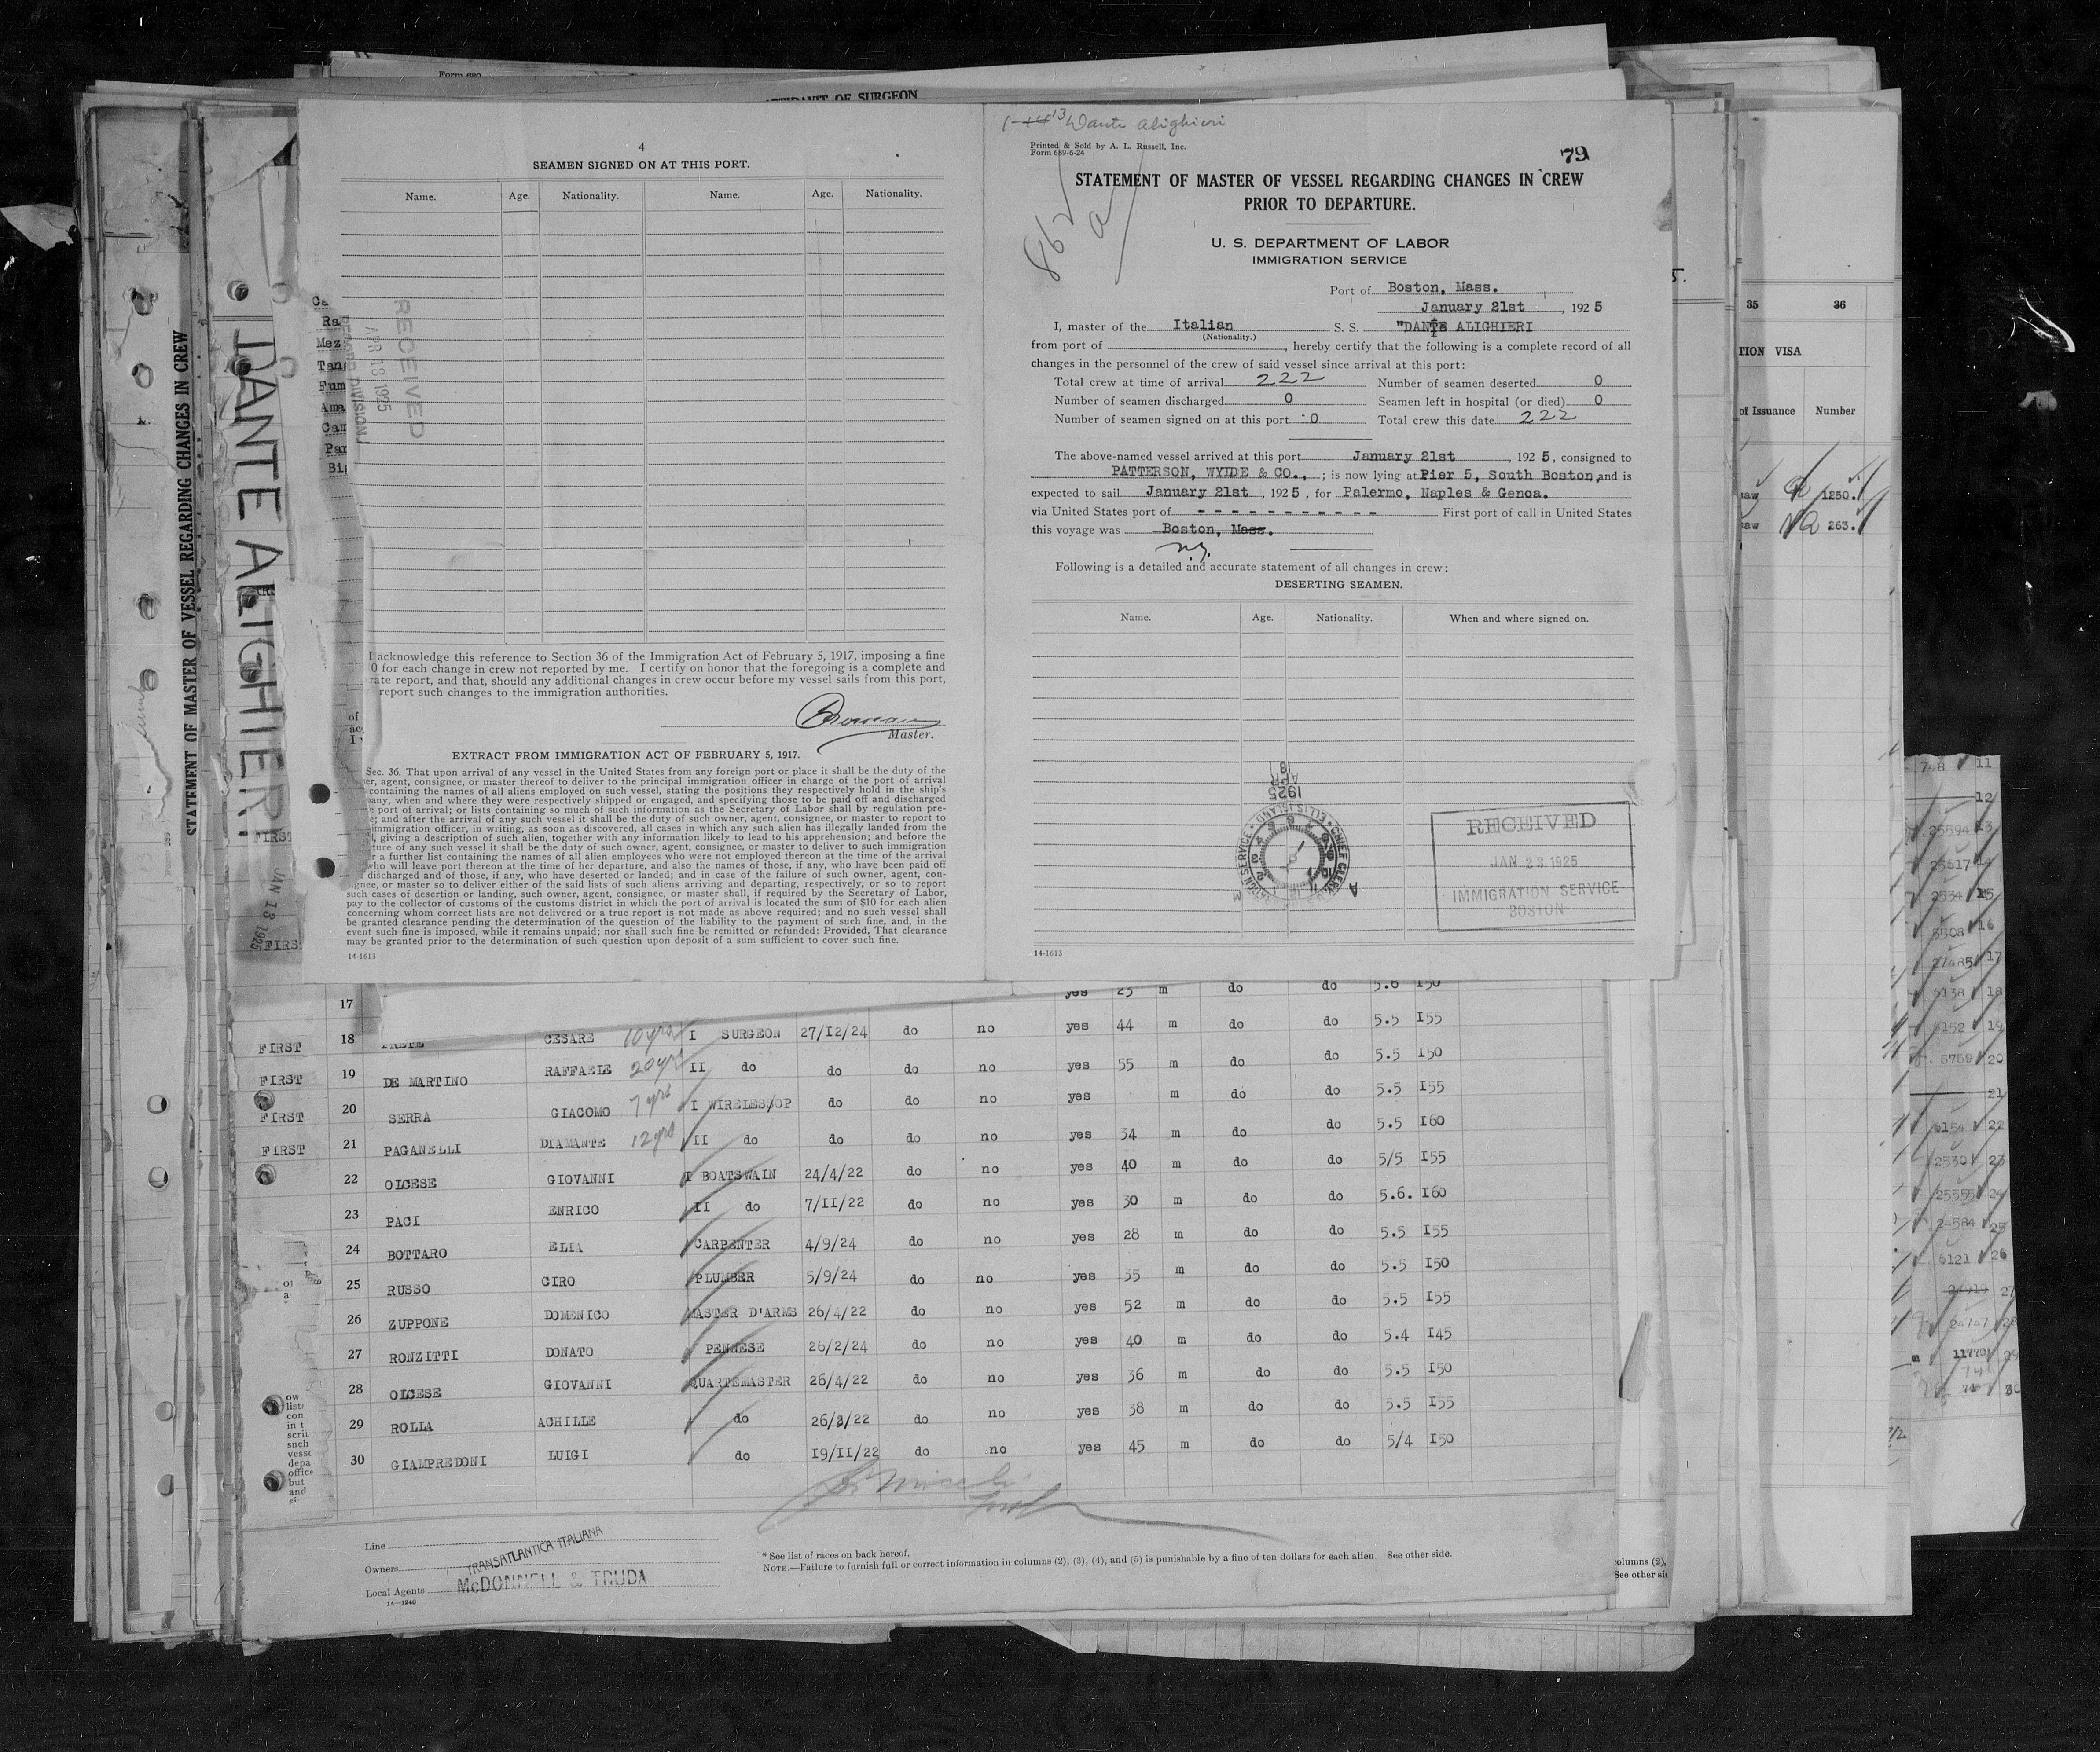 Form 689
AFFIDAVIT OF SURGEON
STATEMENT OF MASTER OF VESSEL REGARDING CHANGES IN CREW
DANTE ALIGHIERI
JAN 13 1925
4
SEAMEN SIGNED ON AT THIS PORT.
Name. Age. Nationality. Name. Age. Nationality.
RECEIVED
APR 18 1925
RECORD DIVISION
Ca
Ra
Mez
Tang
Fum
Ama
Cam
Par
Big
I acknowledge this reference to Section 36 of the Immigration Act of February 5, 1917, imposing a fine
0 for each change in crew not reported by me. I certify on honor that the foregoing is a complete and
rate report, and that, should any additional changes in crew occur before my vessel sails from this port,
report such changes to the immigration authorities.
Master.
EXTRACT FROM IMMIGRATION ACT OF FEBRUARY 5, 1917.
Sec. 36. That upon arrival of any vessel in the United States from any foreign port or place it shall be the duty of the
er, agent, consignee, or master thereof to deliver to the principal immigration officer in charge of the port of arrival
containing the names of all aliens employed on such vessel, stating the positions they respectively hold in the ship's
any, when and where they were respectively shipped or engaged, and specifying those to be paid off and discharged
port of arrival; or lists containing so much of such information as the Secretary of Labor shall by regulation pre-
e; and after the arrival of any such vessel it shall be the duty of such owner, agent, consignee, or master to report to
immigration officer, in writing, as soon as discovered, all cases in which any such alien has illegally landed from the
l, giving a description of such alien, together with any information likely to lead to his apprehension; and before the
ture of any such vessel it shall be the duty of such owner, agent, consignee, or master to deliver to such immigration
r a further list containing the names of all alien employees who were not employed thereon at the time of the arrival
ho will leave port thereon at the time of her departure, and also the names of those, if any, who have been paid off
discharged and of those, if any, who have deserted or landed; and in case of the failure of such owner, agent, con-
signee, or master so to deliver either of the said lists of such aliens arriving and departing, respectively, or so to report
such cases of desertion or landing, such owner, agent, consignee, or master shall, if required by the Secretary of Labor,
pay to the collector of customs of the customs district in which the port of arrival is located the sum of $10 for each alien
concerning whom correct lists are not delivered or a true report is not made as above required; and no such vessel shall
be granted clearance pending the determination of the question of the liability to the payment of such fine, and, in the
event such fine is imposed, while it remains unpaid; nor shall such fine be remitted or refunded: Provided, That clearance
may be granted prior to the determination of such question upon deposit of a sum sufficient to cover such fine.
14-1613
13 Dante Alighieri
Printed & Sold by A. L. Russell, Inc.
Form 689-6-24
79
862
a
STATEMENT OF MASTER OF VESSEL REGARDING CHANGES IN CREW
PRIOR TO DEPARTURE.
U. S. DEPARTMENT OF LABOR
IMMIGRATION SERVICE
Port of Boston, Mass.
January 21st, 1925
I, master of the Italian S. S. "DANTE ALIGHIERI
(Nationality.)
from port of , hereby certify that the following is a complete record of all
changes in the personnel of the crew of said vessel since arrival at this port:
Total crew at time of arrival 222 Number of seamen deserted 0
Number of seamen discharged 0 Seamen left in hospital (or died) 0
Number of seamen signed on at this port 0 Total crew this date 222
The above-named vessel arrived at this port January 21st, 1925, consigned to
PATTERSON, WYIDE & CO., ; is now lying at Pier 5, South Boston, and is
expected to sail January 21st, 1925, for Palermo, Naples & Genoa.
via United States port of - - - - - - - - - - - First port of call in United States
this voyage was Boston, Mass.
n.y.
Following is a detailed and accurate statement of all changes in crew:
DESERTING SEAMEN.
Name. Age. Nationality. When and where signed on.
APR 18
1925
CHIEF CLERK
ELLIS ISLAND
RECEIVED
JAN 23 1925
IMMIGRATION SERVICE
BOSTON
14-1613
35 36
TION VISA
of Issuance Number
saw 1250.
saw 263.
17 yes 25 m do do 5.6 150
FIRST 18 CESARE 10 yrs I SURGEON 27/12/24 do no yes 44 m do do 5.5 155
FIRST 19 DE MARTINO RAFFAELE 20 yrs II do do do no yes 55 m do do 5.5 150
FIRST 20 SERRA GIACOMO 7 yrs I WIRELESS/OP do do no yes m do do 5.5 155
FIRST 21 PAGANELLI DIAMANTE 12 yrs II do do do no yes 34 m do do 5.5 160
22 OLCESE GIOVANNI I BOATSWAIN 24/4/22 do no yes 40 m do do 5/5 155
23 PACI ENRICO II do 7/II/22 do no yes 30 m do do 5.6. 160
24 BOTTARO ELIA CARPENTER 4/9/24 do no yes 28 m do do 5.5 155
25 RUSSO CIRO PLUMBER 5/9/24 do no yes 35 m do do 5.5 150
26 ZUPPONE DOMENICO MASTER D'ARMS 26/4/22 do no yes 52 m do do 5.5 155
27 RONZITTI DONATO PENNESE 26/2/24 do no yes 40 m do do 5.4 145
28 OLCESE GIOVANNI QUARTEMASTER 26/4/22 do no yes 36 m do do 5.5 150
29 ROLLA ACHILLE do 26/8/22 do no yes 38 m do do 5.5 155
30 GIAMPREDONI LUIGI do 19/II/22 do no yes 45 m do do 5/4 150
Line
Owners TRANSATLANTICA ITALIANA
Local Agents McDONNELL & TRUDA
14-1240
* See list of races on back hereof.
NOTE.—Failure to furnish full or correct information in columns (2), (3), (4), and (5) is punishable by a fine of ten dollars for each alien. See other side.
olumns (2),
See other sid
748 11
12
25594 13
25617 14
2534 15
5508 16
27485 17
6138 18
6152 19
5759 20
21
6154 22
2530 23
25555 24
24584 25
6121 26
27
24747 28
11770 29
30